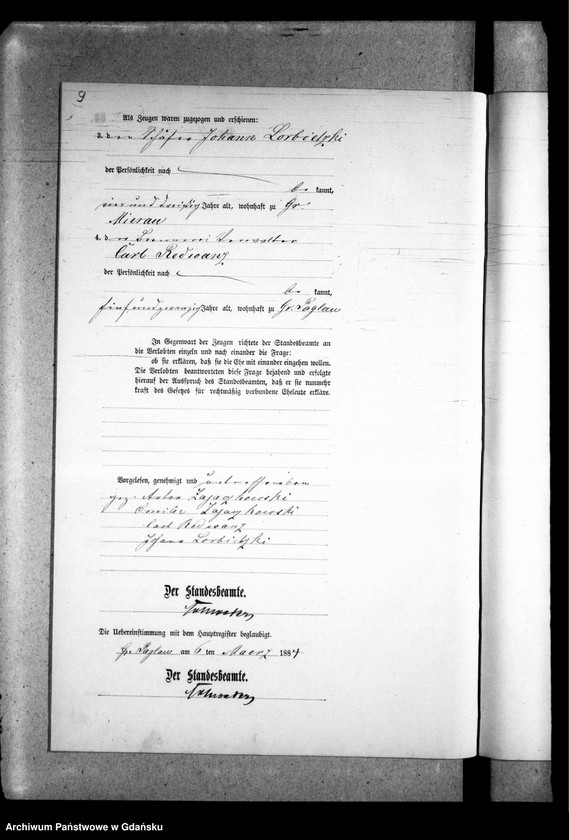 9
Als Zeugen waren zugezogen und erschienen:
3. der Schäfer Johann Lorbietzki
der Persönlichkeit nach
be kannt,
ein und dreißig Jahre alt, wohnhaft zu Gr.
Mierau
4. der Brennerei Verwalter
Carl Rediwanz
der Persönlichkeit nach
be kannt,
fünf und zwanzig Jahre alt, wohnhaft zu Gr. Paglau
In Gegenwart der Zeugen richtete der Standesbeamte an
die Verlobten einzeln und nach einander die Frage:
ob sie erklären, daß sie die Ehe mit einander eingehen wollen.
Die Verlobten beantworteten diese Frage bejahend und erfolgte
hierauf der Ausspruch des Standesbeamten, daß er sie nunmehr
kraft des Gesetzes für rechtmäßig verbundene Eheleute erkläre.
Vorgelesen, genehmigt und unterschrieben
gez. Anton
Johann Lorbietzki
Der Standesbeamte.
Die Uebereinstimmung mit dem Hauptregister beglaubigt.
Gr. Paglau am 6 ten Maerz 1884
Der Standesbeamte.
Archiwum Państwowe w Gdańsku